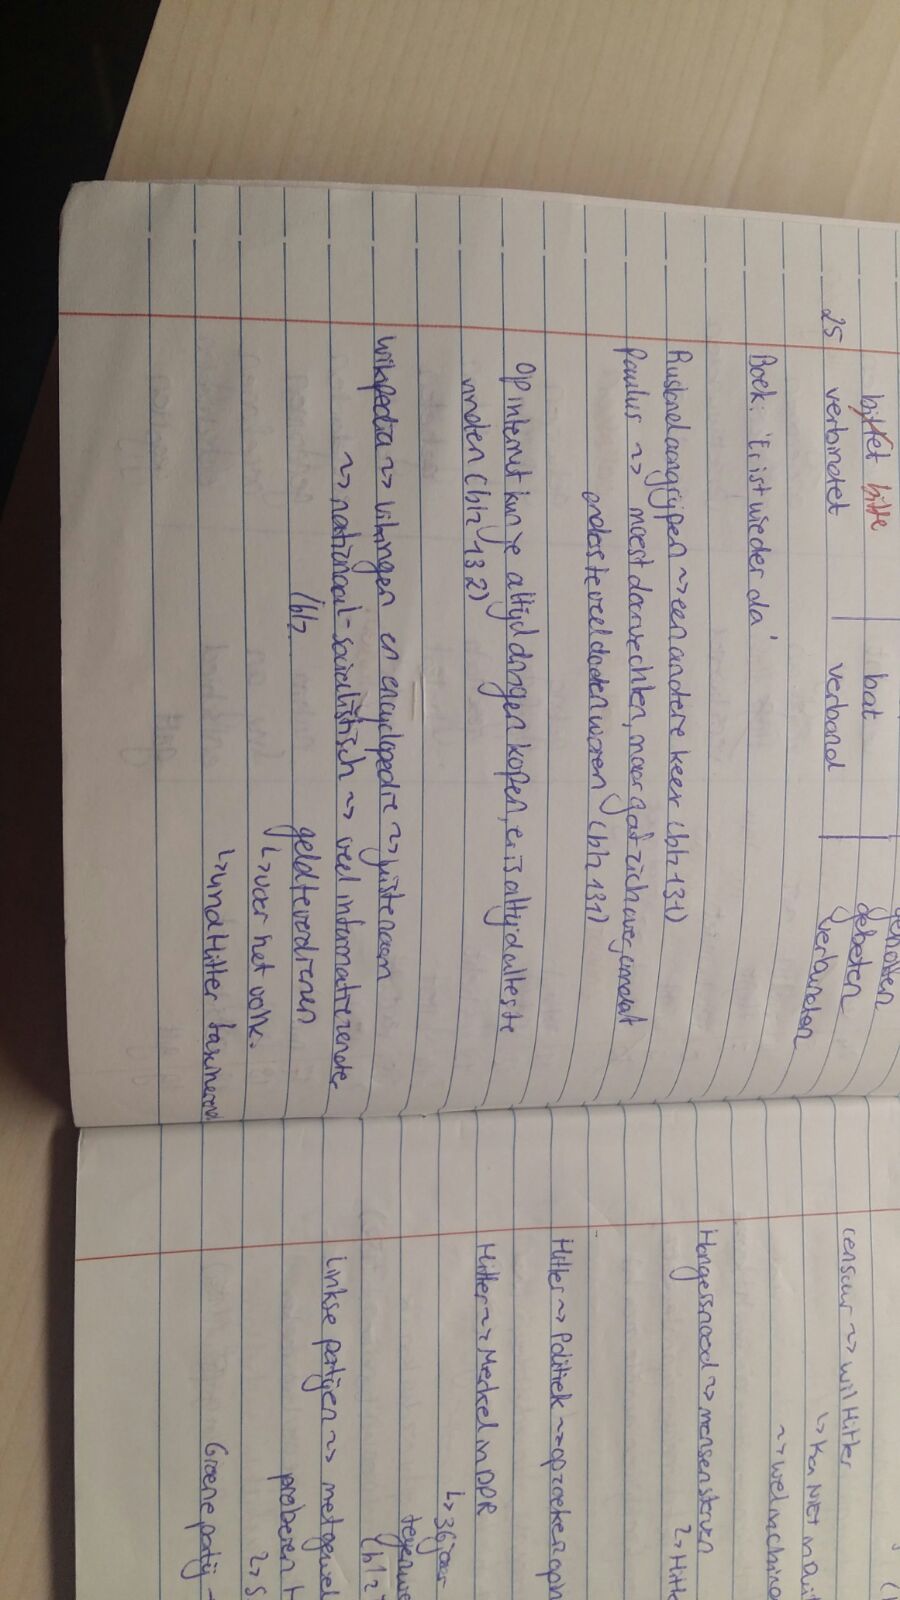 geholfen
bittet bitte bat gebeten
25 verbindet verband verbunden
Boek: 'Er ist wieder da'
Rusland aangrijpen ~> een andere keer (blz 131)
Paulus ~> moest doorvechten, maar gaf zich over, omdat
anders te veel doden waren (blz 131)
Op internet kun je altijd dingen kopen, er is altijd alles te
vinden (blz 132)
Wikipedia ~> Vikingen en encyclopedie ~> juiste naam
~> nationaal-socialistisch ~> veel informatie zonder
(blz geld te verdienen
↳ voor het volk.
↳ vind Hitler fascinerend
censuur ~> wil Hitler
↳ Kan NIET in Duit
~> wel in China
Hongersnood ~> mensen sterven
↳ Hitle
Hitler ~> Politiek ~> opzoeken op h
Hitler ~> Merkel in DDR
↳ 36 jaar
tegenwe
(blz
Linkse partijen ~> met gewel
proberen H
↳ S
Groene partij -